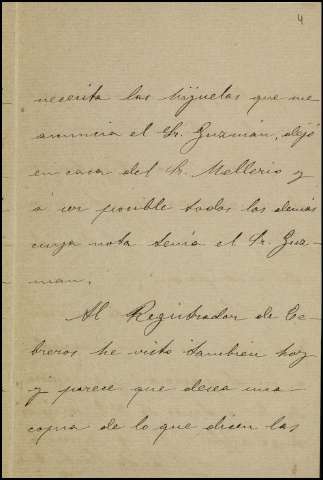 4
necesita las hijuelas que me
anuncia el Sr. Guzmán, dejó
en casa del Sr. Mellerio y
á ser posible todas las demás
cuya nota tenía el Sr. Guz-
man.
Al Registrador de Ce-
breros he visto tambien hoy
y parece que desea una
copia de lo que dicen las